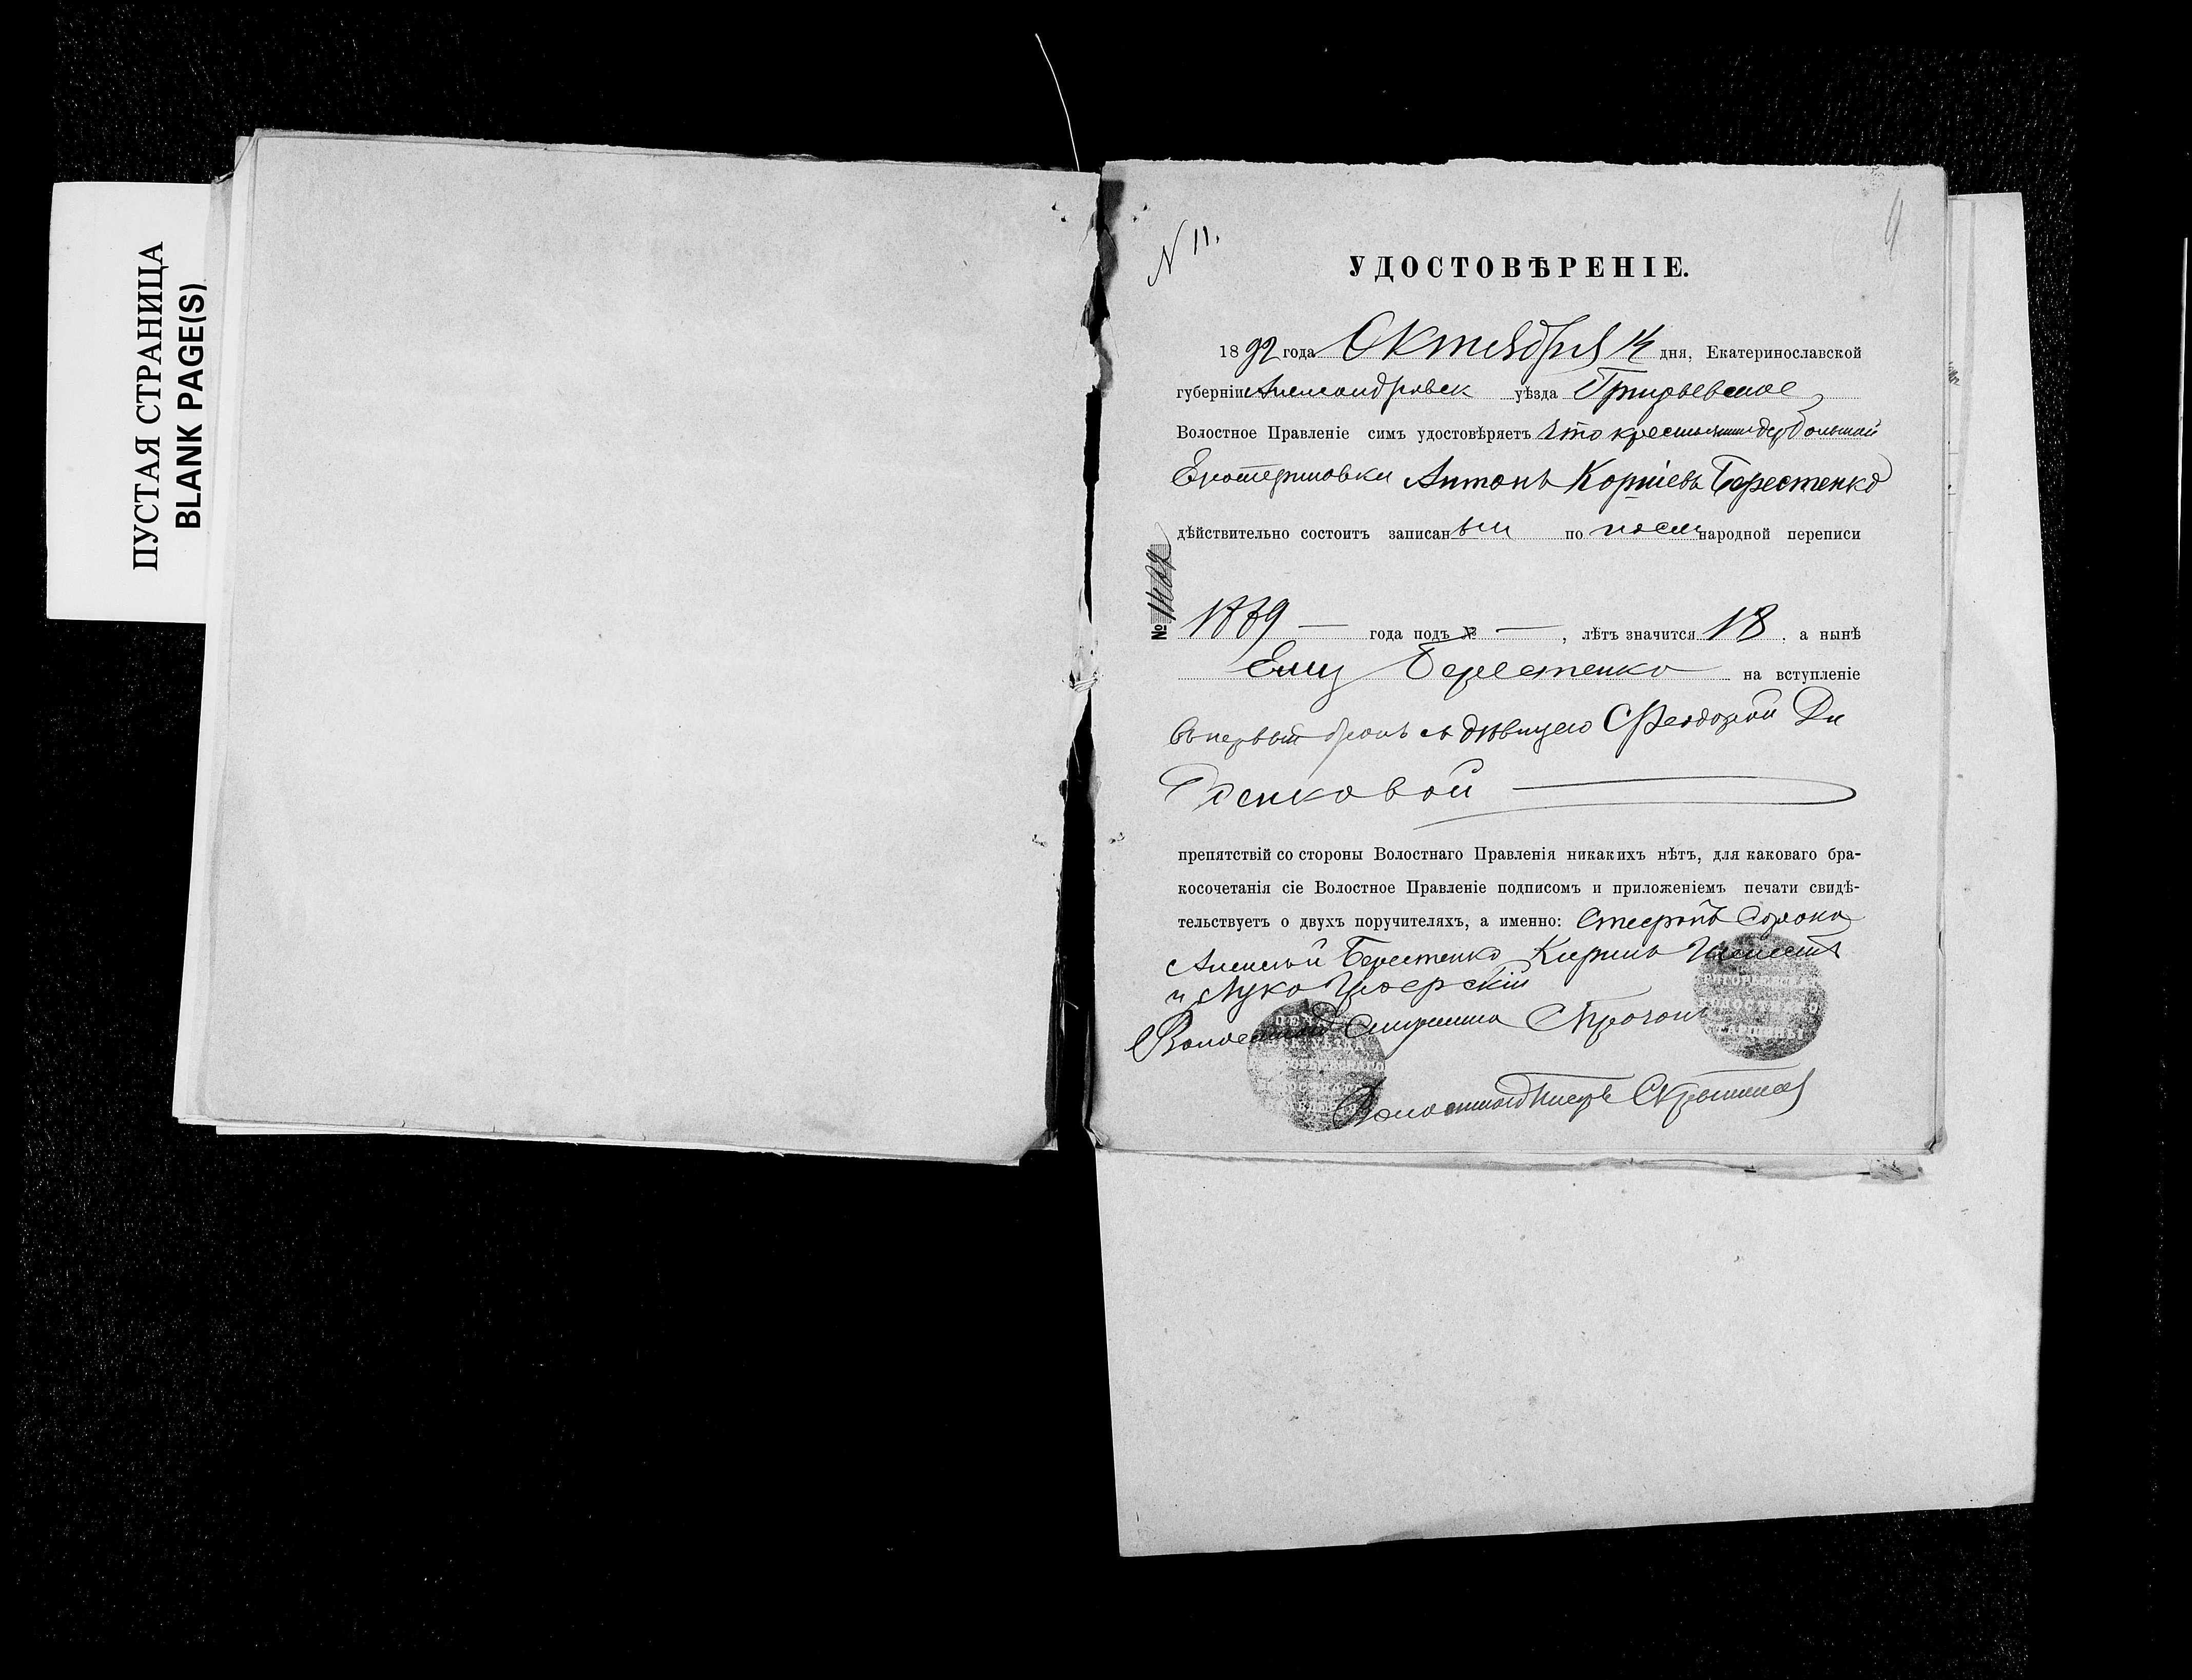 ПУСТАЯ СТРАНИЦА
BLANK PAGE(S)
N 11.
УДОСТОВѢРЕНІЕ.
1892 года Октября 14 дня, Екатеринославской
губерніи Александровск уѣзда Григорьевское
Волостное Правленіе симъ удостовѣряетъ что крестьянинъ дер Большой
Екатериновки Антонъ Корніевъ Берестенко
дѣйствительно состоитъ записанным по посем народной переписи
№
года подъ № — , лѣтъ значится 18 . а нынѣ
Ему Берестенко на вступленіе
въ первый бракъ съ дѣвицею Феодорой Ди
денковой
препятствій со стороны Волостнаго Правленія никакихъ нѣтъ, для каковаго бра-
косочетанія сіе Волостное Правленіе подписомъ и приложеніемъ печати свидѣ-
тельствуетъ о двухъ поручителяхъ, а именно: Сорока
Алексѣй Берестенко Кирилъ
и Лука
Волостной Старшина
Волостной Писарь